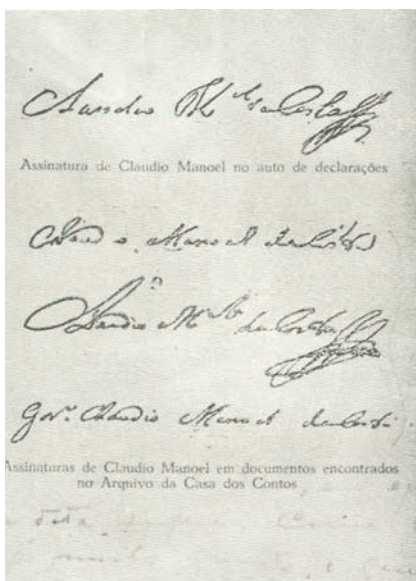 Claudio M.el da Costa
Assinatura de Claudio Manoel no auto de declarações
Claudio Manoel da Costa
Claudio M.el da Costa
Gov.r Claudio Manoel da Costa
Assinaturas de Claudio Manoel em documentos encontrados
no Arquivo da Casa dos Contos